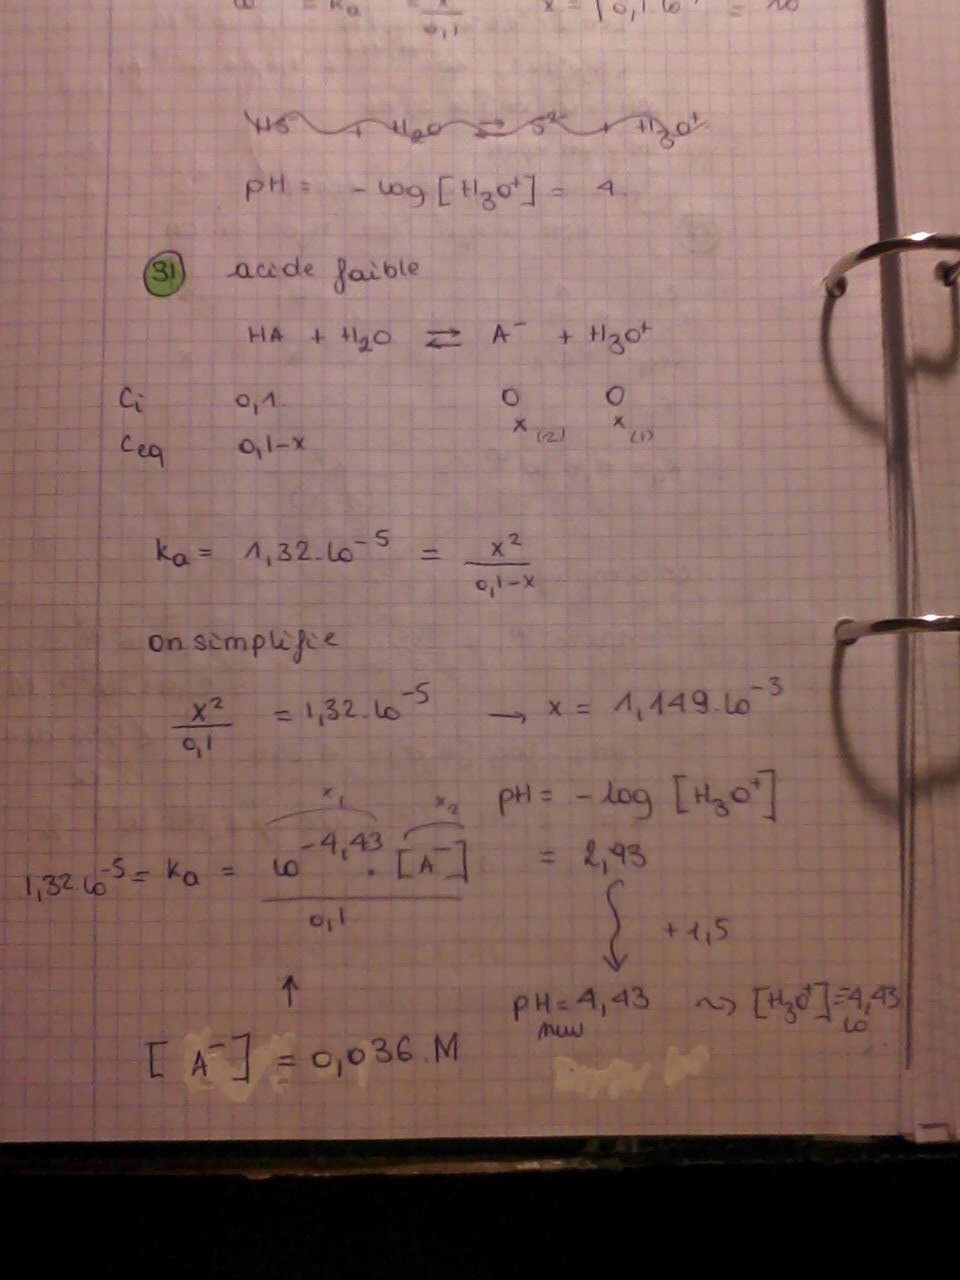 Ka = x/0,1
HS⁻ + H₂O ⇌ S²⁻ + H₃O⁺
pH = - log [H₃O⁺] = 4
31 acide faible
HA + H₂O ⇌ A⁻ + H₃O⁺
Ci 0,1 0 0
Ceq 0,1-x x (2) x (1)
Ka = 1,32.10⁻⁵ = x²/(0,1-x)
on simplifie
x²/0,1 = 1,32.10⁻⁵ → x = 1,149.10⁻³
pH = - log [H₃O⁺]
= 2,93
+1,5
pH = 4,43 ⇝ [H₃O⁺] = 10⁻⁴,⁴³
x₁ x₂
1,32.10⁻⁵ = Ka = 10⁻⁴,⁴³ . [A⁻] / 0,1
↑
[A⁻] = 0,036 M